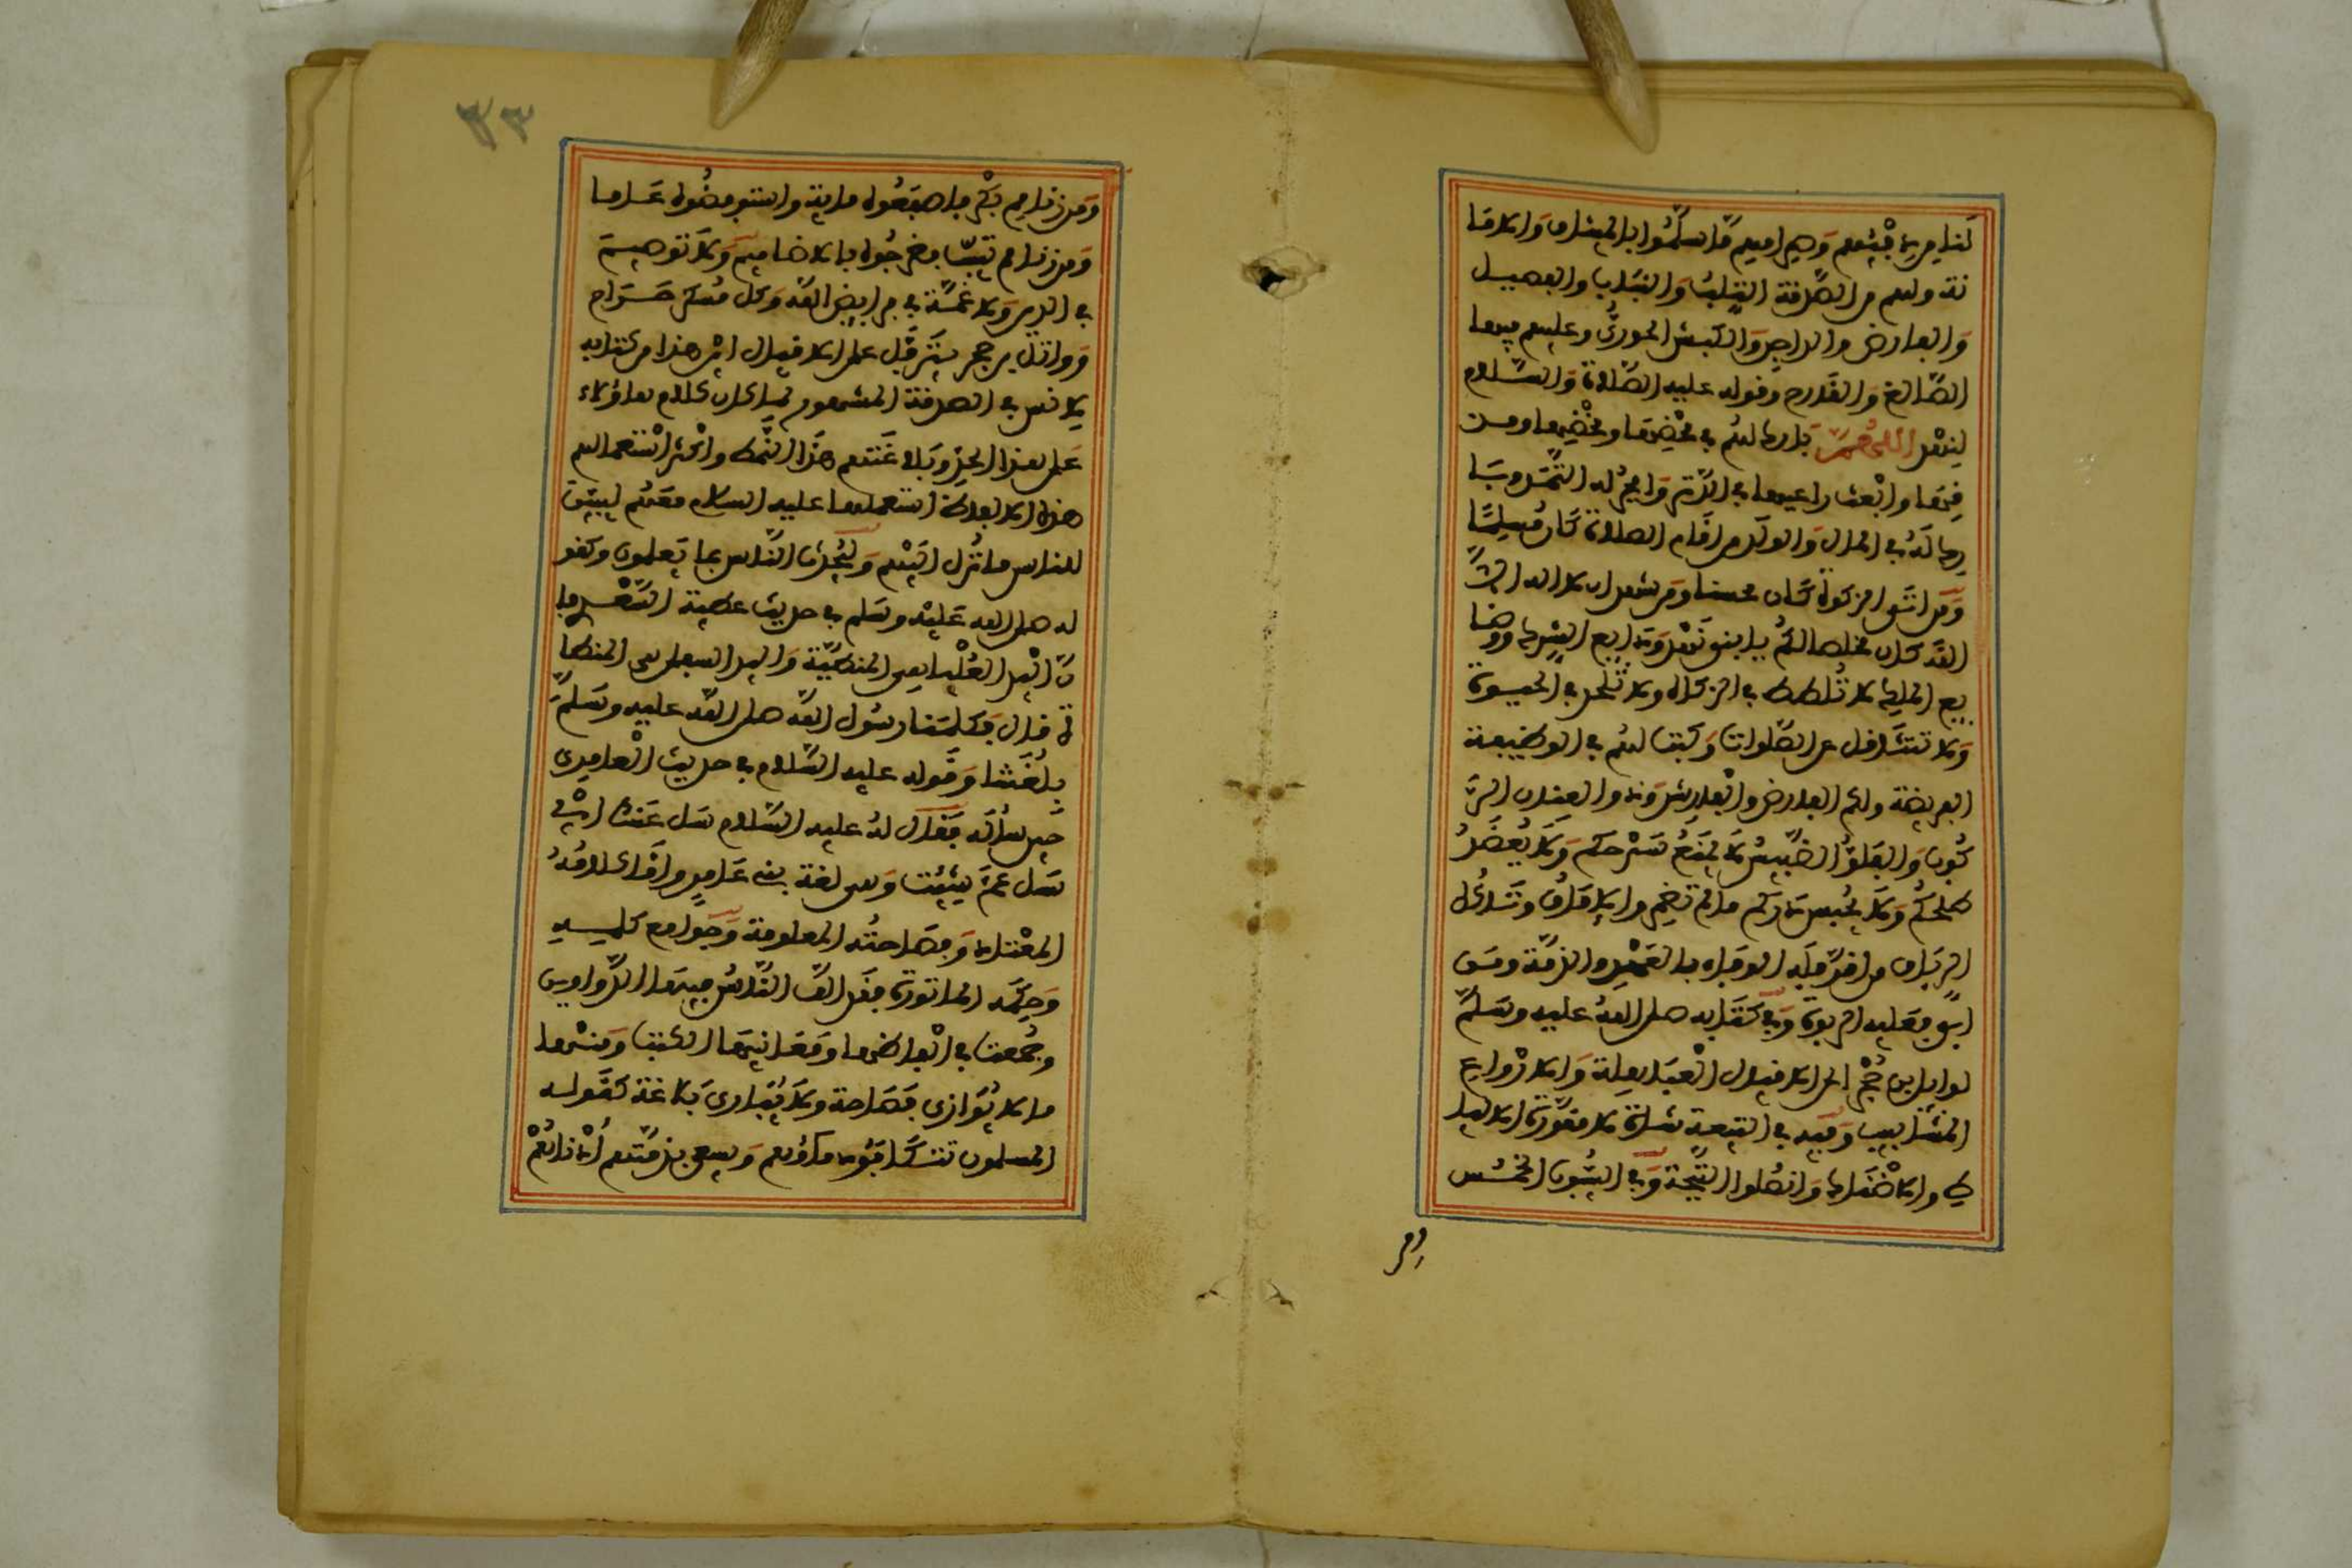 لنا من دفئهم وصرامهم ما سلموا بالميثاق والاما
نة ولهم من الصدقة الثلب والناب والفصيل
والفارض والداجن والكبش الحوري وعليهم فيها
الصالغ والقارح وقوله عليه الصلاة والسلام
لنهد اللهم بارك لهم في محضها ومخضها ومذ
قها وابعث راعيها في الدثر وافجر له الثمد وبا
رك له في المال والولد من اقام الصلاة كان مسلما
ومن اتى الزكوة كان محسنا ومن شهد ان لا اله الا
الله كان مخلصا لكم يا بني نهد ودايع الشرك ووضا
يع الملك لا تلطط في الزكاة ولا تلحد في الحيوة
ولا تتثاقل عن الصلوات وكتب لهم في الوظيفة
الفريضة ولكم الفارض والفريش وذو العنان الر
كوب والفلو الضبيس لا يمنع سرحكم ولا يعضد
طلحكم ولا يحبس دركم ما لم تضمروا الاماق وتاكلوا
الرباق من اقر فله الوفاء بالعهد والذمة ومن
ابى فعليه الربوة وفي كتابه صلى الله عليه وسلم
لوايل بن حجر الى الاقيال العباهلة والارواع
المشابيب وفيه في التيعة شاة لا مقورة الاليا
ط ولا ضناك وانطوا الثبجة وفي السيوب الخمس
ومن
٣٣
ومن زنا مم بكر فاصقعوه ماية واستوفضوه عاما
ومن زنا مم ثيب فضرجوه بالاضاميم ولا توصيم
في الدين ولا غمة في فرايض الله وكل مسكر حرام
ووائل بن حجر يترفل على الاقيال اين هذا من كتابه
لانس في الصدقة المشهور لما كان كلام هاؤلاء
على هذا الحد وبلاغتهم هذا النمط واكثر استعمالهم
هذه الالفاظ استعملها عليه السلام معهم ليبين
للناس ما نزل اليهم وليحدث الناس بما يعلمون وكقو
له صلى الله عليه وسلم في حديث عطية السعدي فا
ن اليد العليا هي المنطية واليد السفلى هي المنطا
ة قال فكلمنا رسول الله صلى الله عليه وسلم
بلغتنا وقوله عليه السلام في حديث العامري
حين ساله فقال له عليه السلام سل عنك اي
سل عم شئت وهي لغة بني عامر واما كلامه
المعتاد وفصاحته المعلومة وجوامع كلمه
وحكمه الماثورة فقد الف الناس فيها الدواوين
وجمعت في الفاظها ومعانيها الكتب ومنها
ما لا يوازى فصاحة ولا يبارى بلاغة كقوله
المسلمون تتكافؤ دماؤهم ويسعى بذمتهم ادناهم